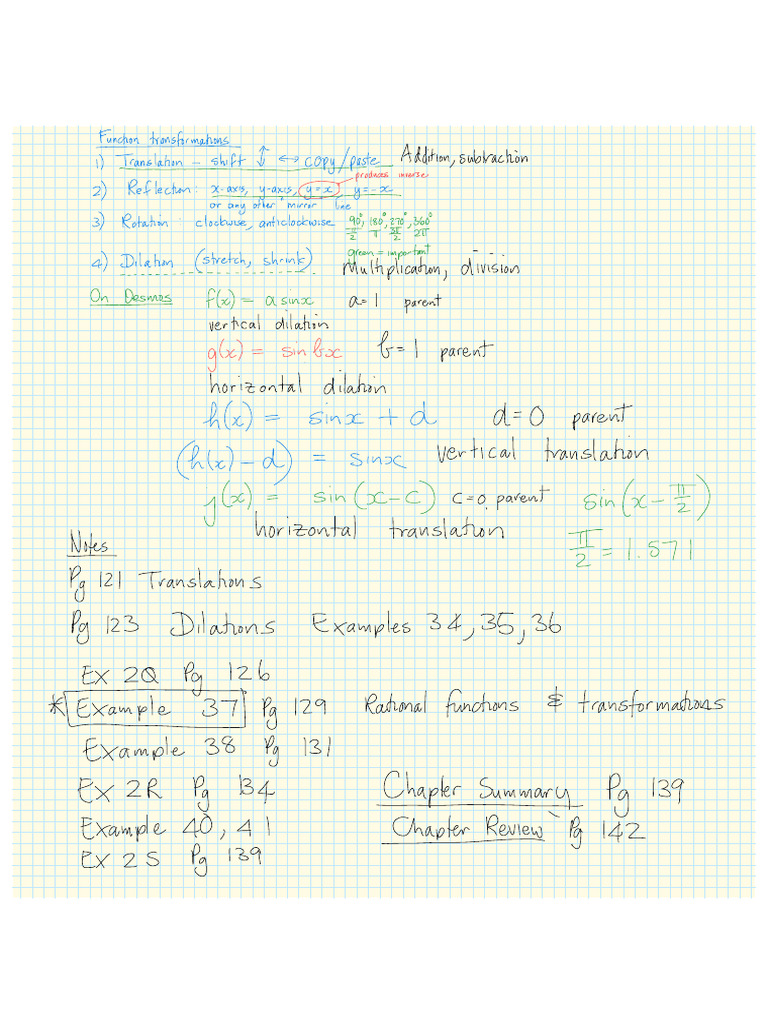 Function transformations
1) Translation – shift ↕ ↔ copy/paste Addition, subtraction
produces inverse
2) Reflection: x-axis, y-axis, y=x, y=-x
or any other mirror line
3) Rotation: clockwise, anticlockwise 90°, 180°, 270°, 360°
π/2 π 3π/2 2π
green = important
4) Dilation (stretch, shrink). Multiplication, division
On Desmos f(x) = a sinx a=1 parent
vertical dilation
g(x) = sin bx b=1 parent
horizontal dilation
h(x) = sinx + d d=0 parent
(h(x) – d) = sinx vertical translation
j(x) = sin(x–c) c=0 parent sin(x – π/2)
horizontal translation π/2 = 1.571
Notes
Pg 121 Translations
Pg 123 Dilations Examples 34, 35, 36
Ex 2Q Pg 126
* Example 37 Pg 129 Rational functions & transformations
Example 38 Pg 131
Ex 2R Pg 134
Chapter Summary Pg 139
Example 40, 41
Chapter Review Pg 142
Ex 2S Pg 139